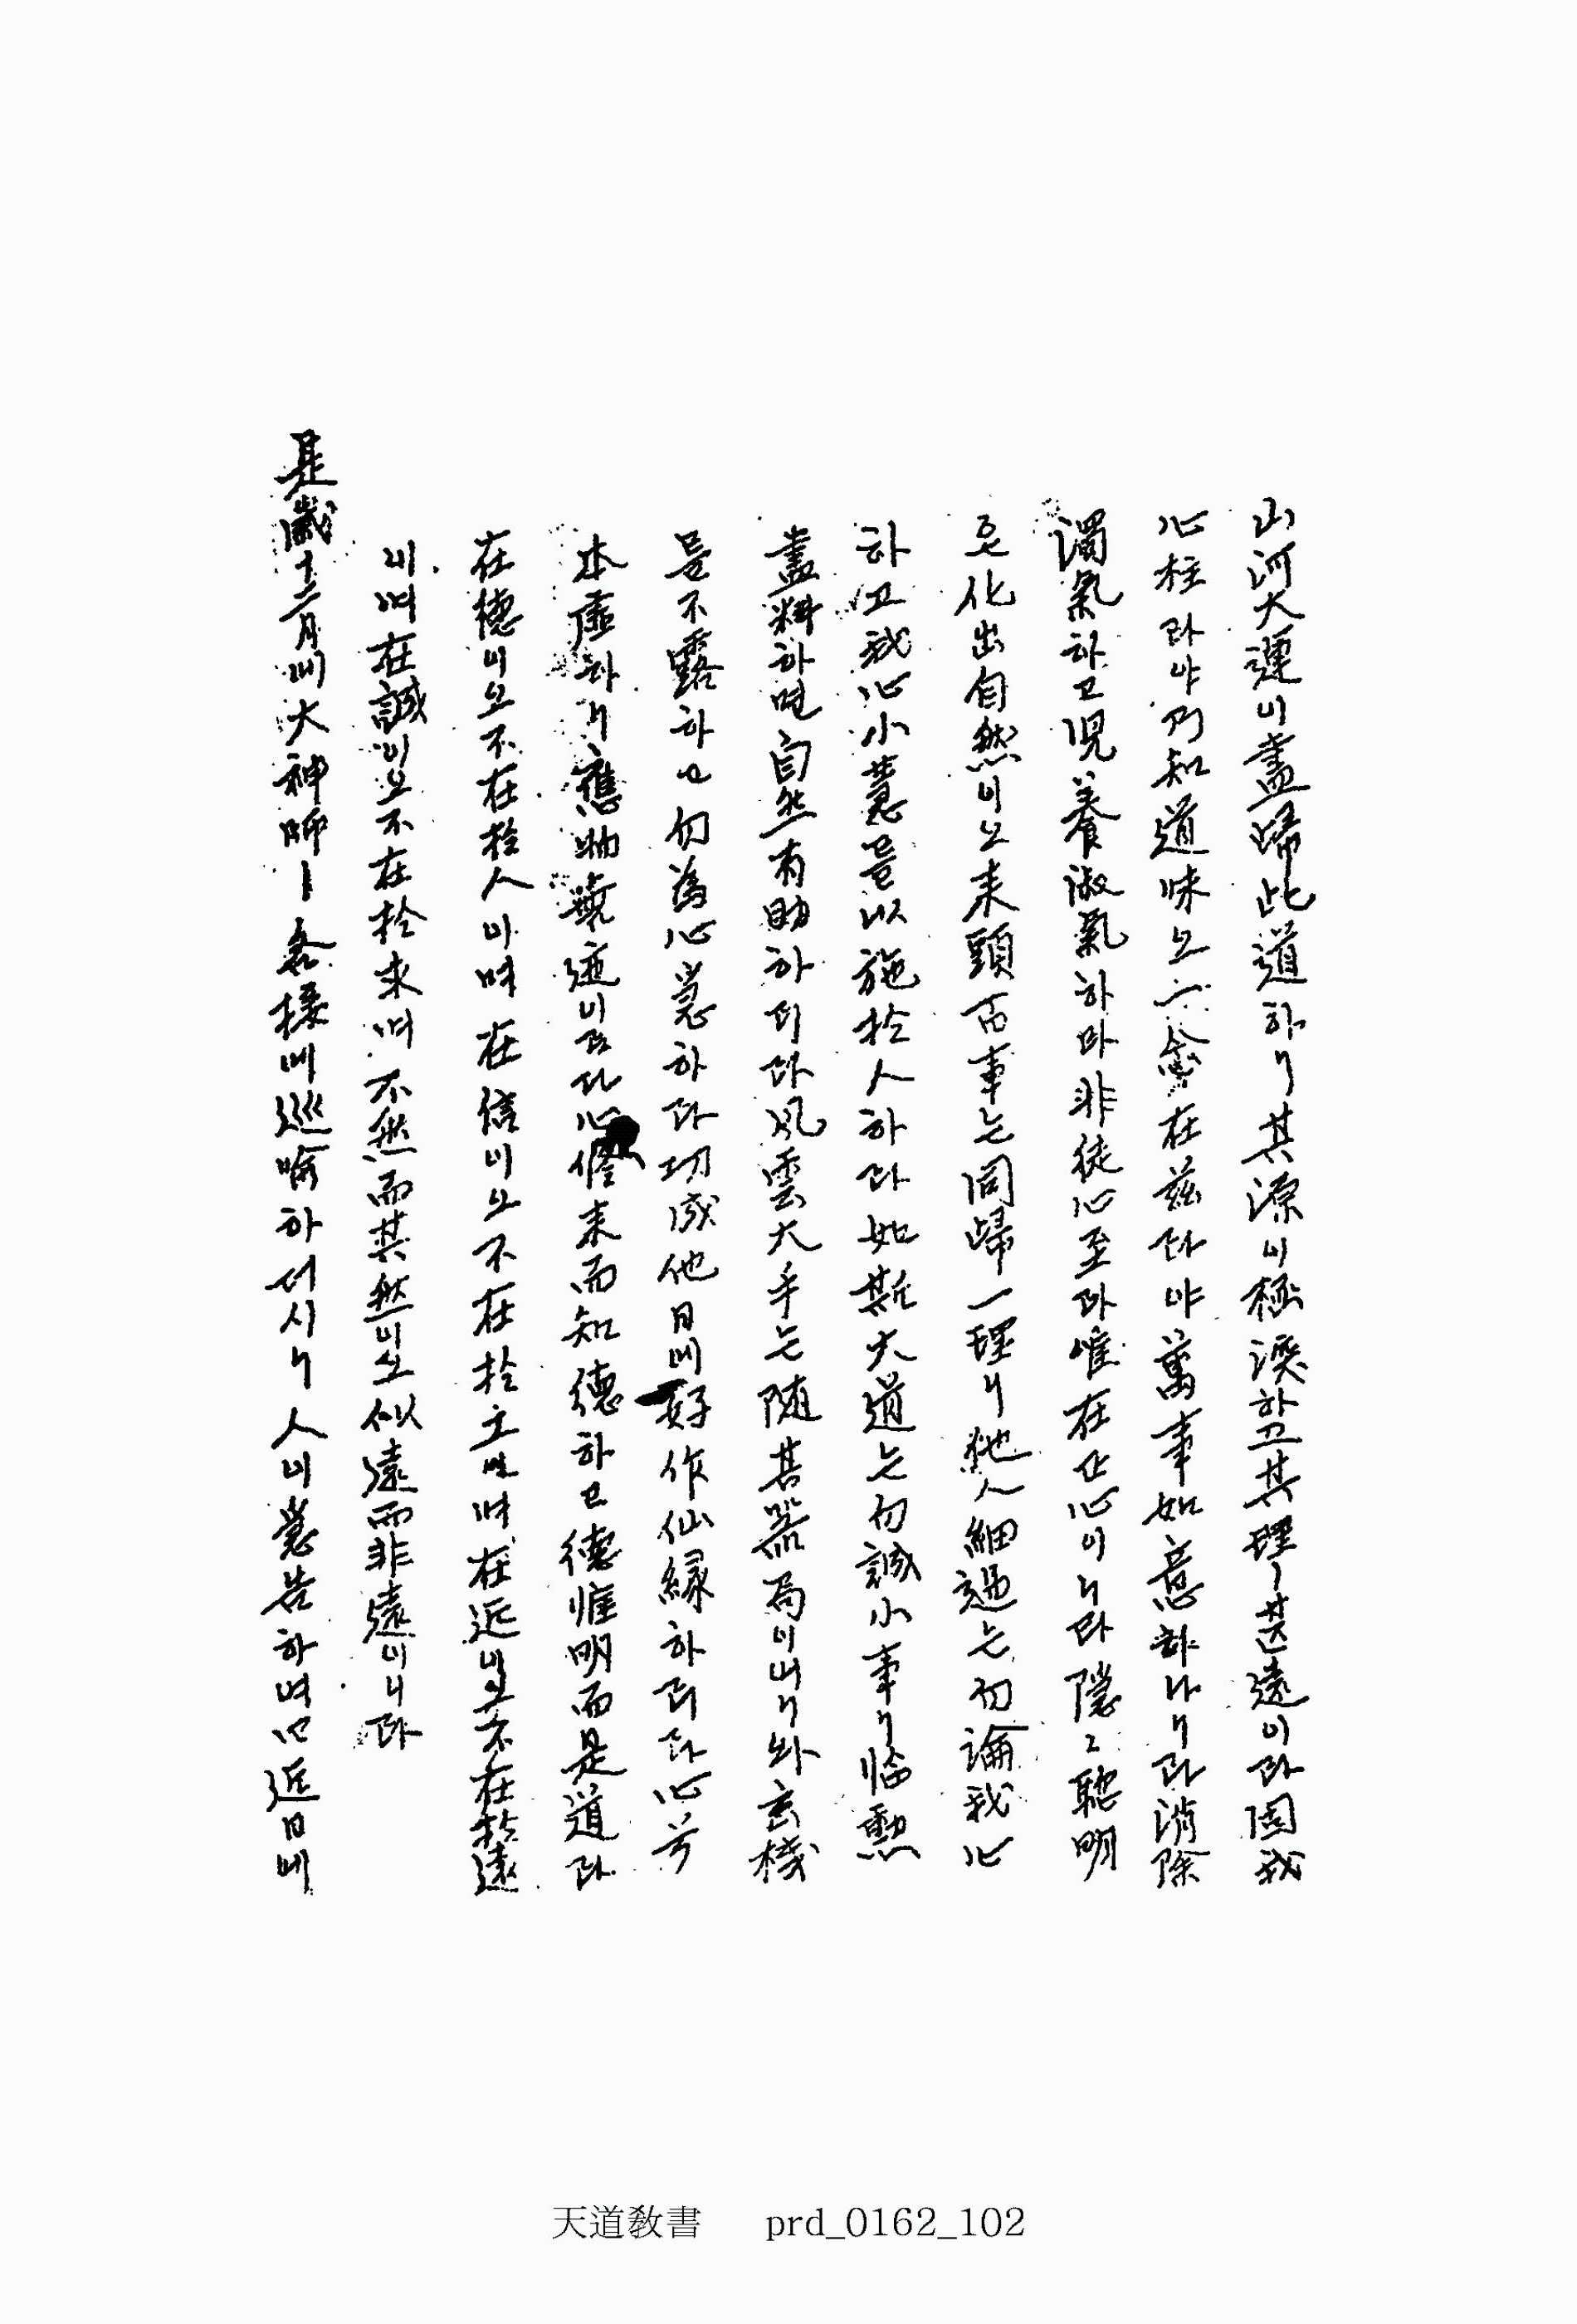 山河大運이盡歸此道하니其源이極深하고其理ㅣ甚遠이라固我
心柱라야乃知道味오一念在玆라야萬事如意하나니라消除
濁氣하고兒養淑氣하라非徒心至라惟在正心이니라隱々聰明
은化出自然이오來頭百事는同歸一理니他人細過는勿論我心
하고我心小慧를以施於人하라如斯大道는勿誠小事니臨勳
盡料하면自然有助하리라風雲大手는隨其器局이니라玄機
를不露하고勿爲心急하라功成他日에好作仙緣하리라心兮
本虛하니應物無迹이로다心修來而知德하고德惟明而是道라
在德이오不在於人이며在信이오不在於工이며在近이오不在於遠
이며在誠이오不在於求며不然而其然이오似遠而非遠이니라
是歲十二月에大神師ㅣ各接에巡喩하더시니人이急告하여曰近日에
天道敎書 prd_0162_102